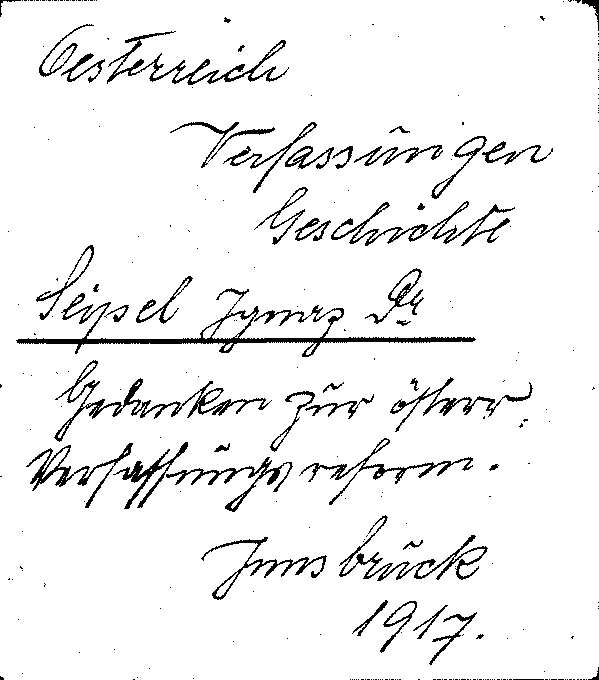 Oesterreich
Verfassungen
Geschichte
Seipel Ignaz Dr
Gedanken zur österr.
Verfassungsreform.
Innsbruck
1917.